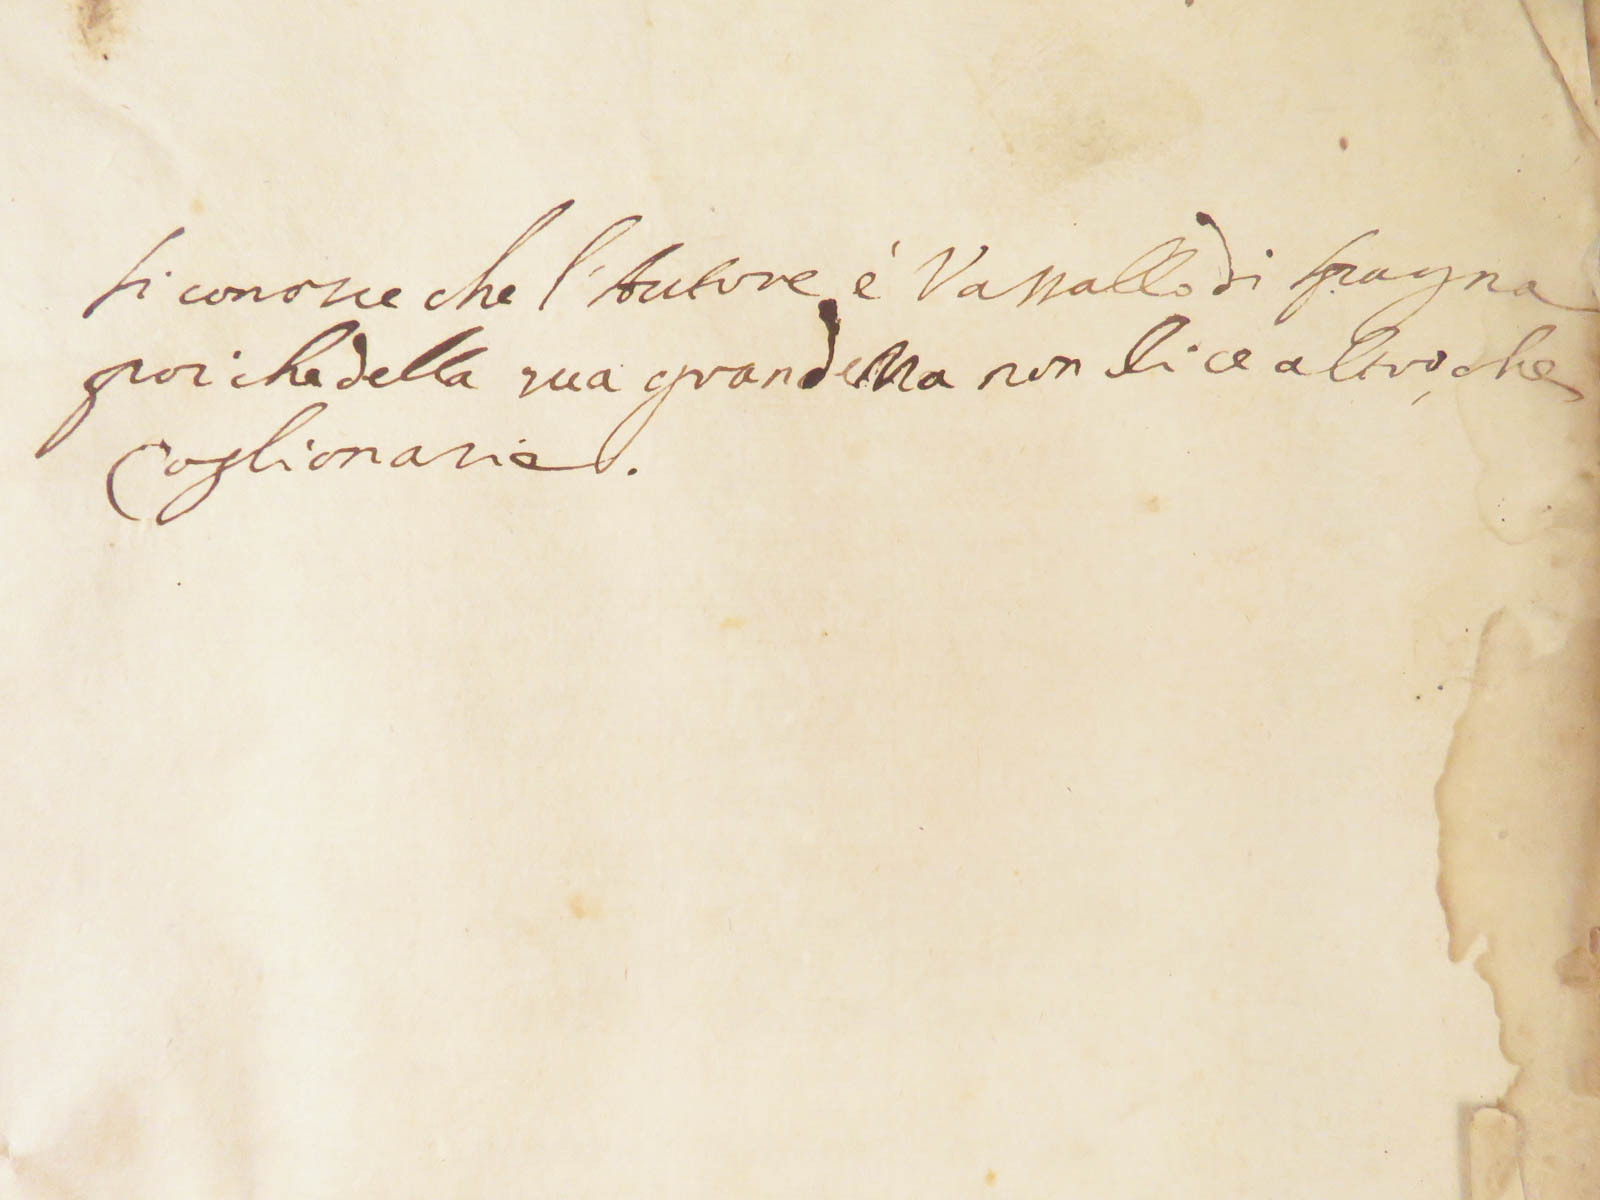 Si conosce che l'Autore è Vassallo di Spagna
poiche della sua grandezza non dice altro, che
Coglionarie.